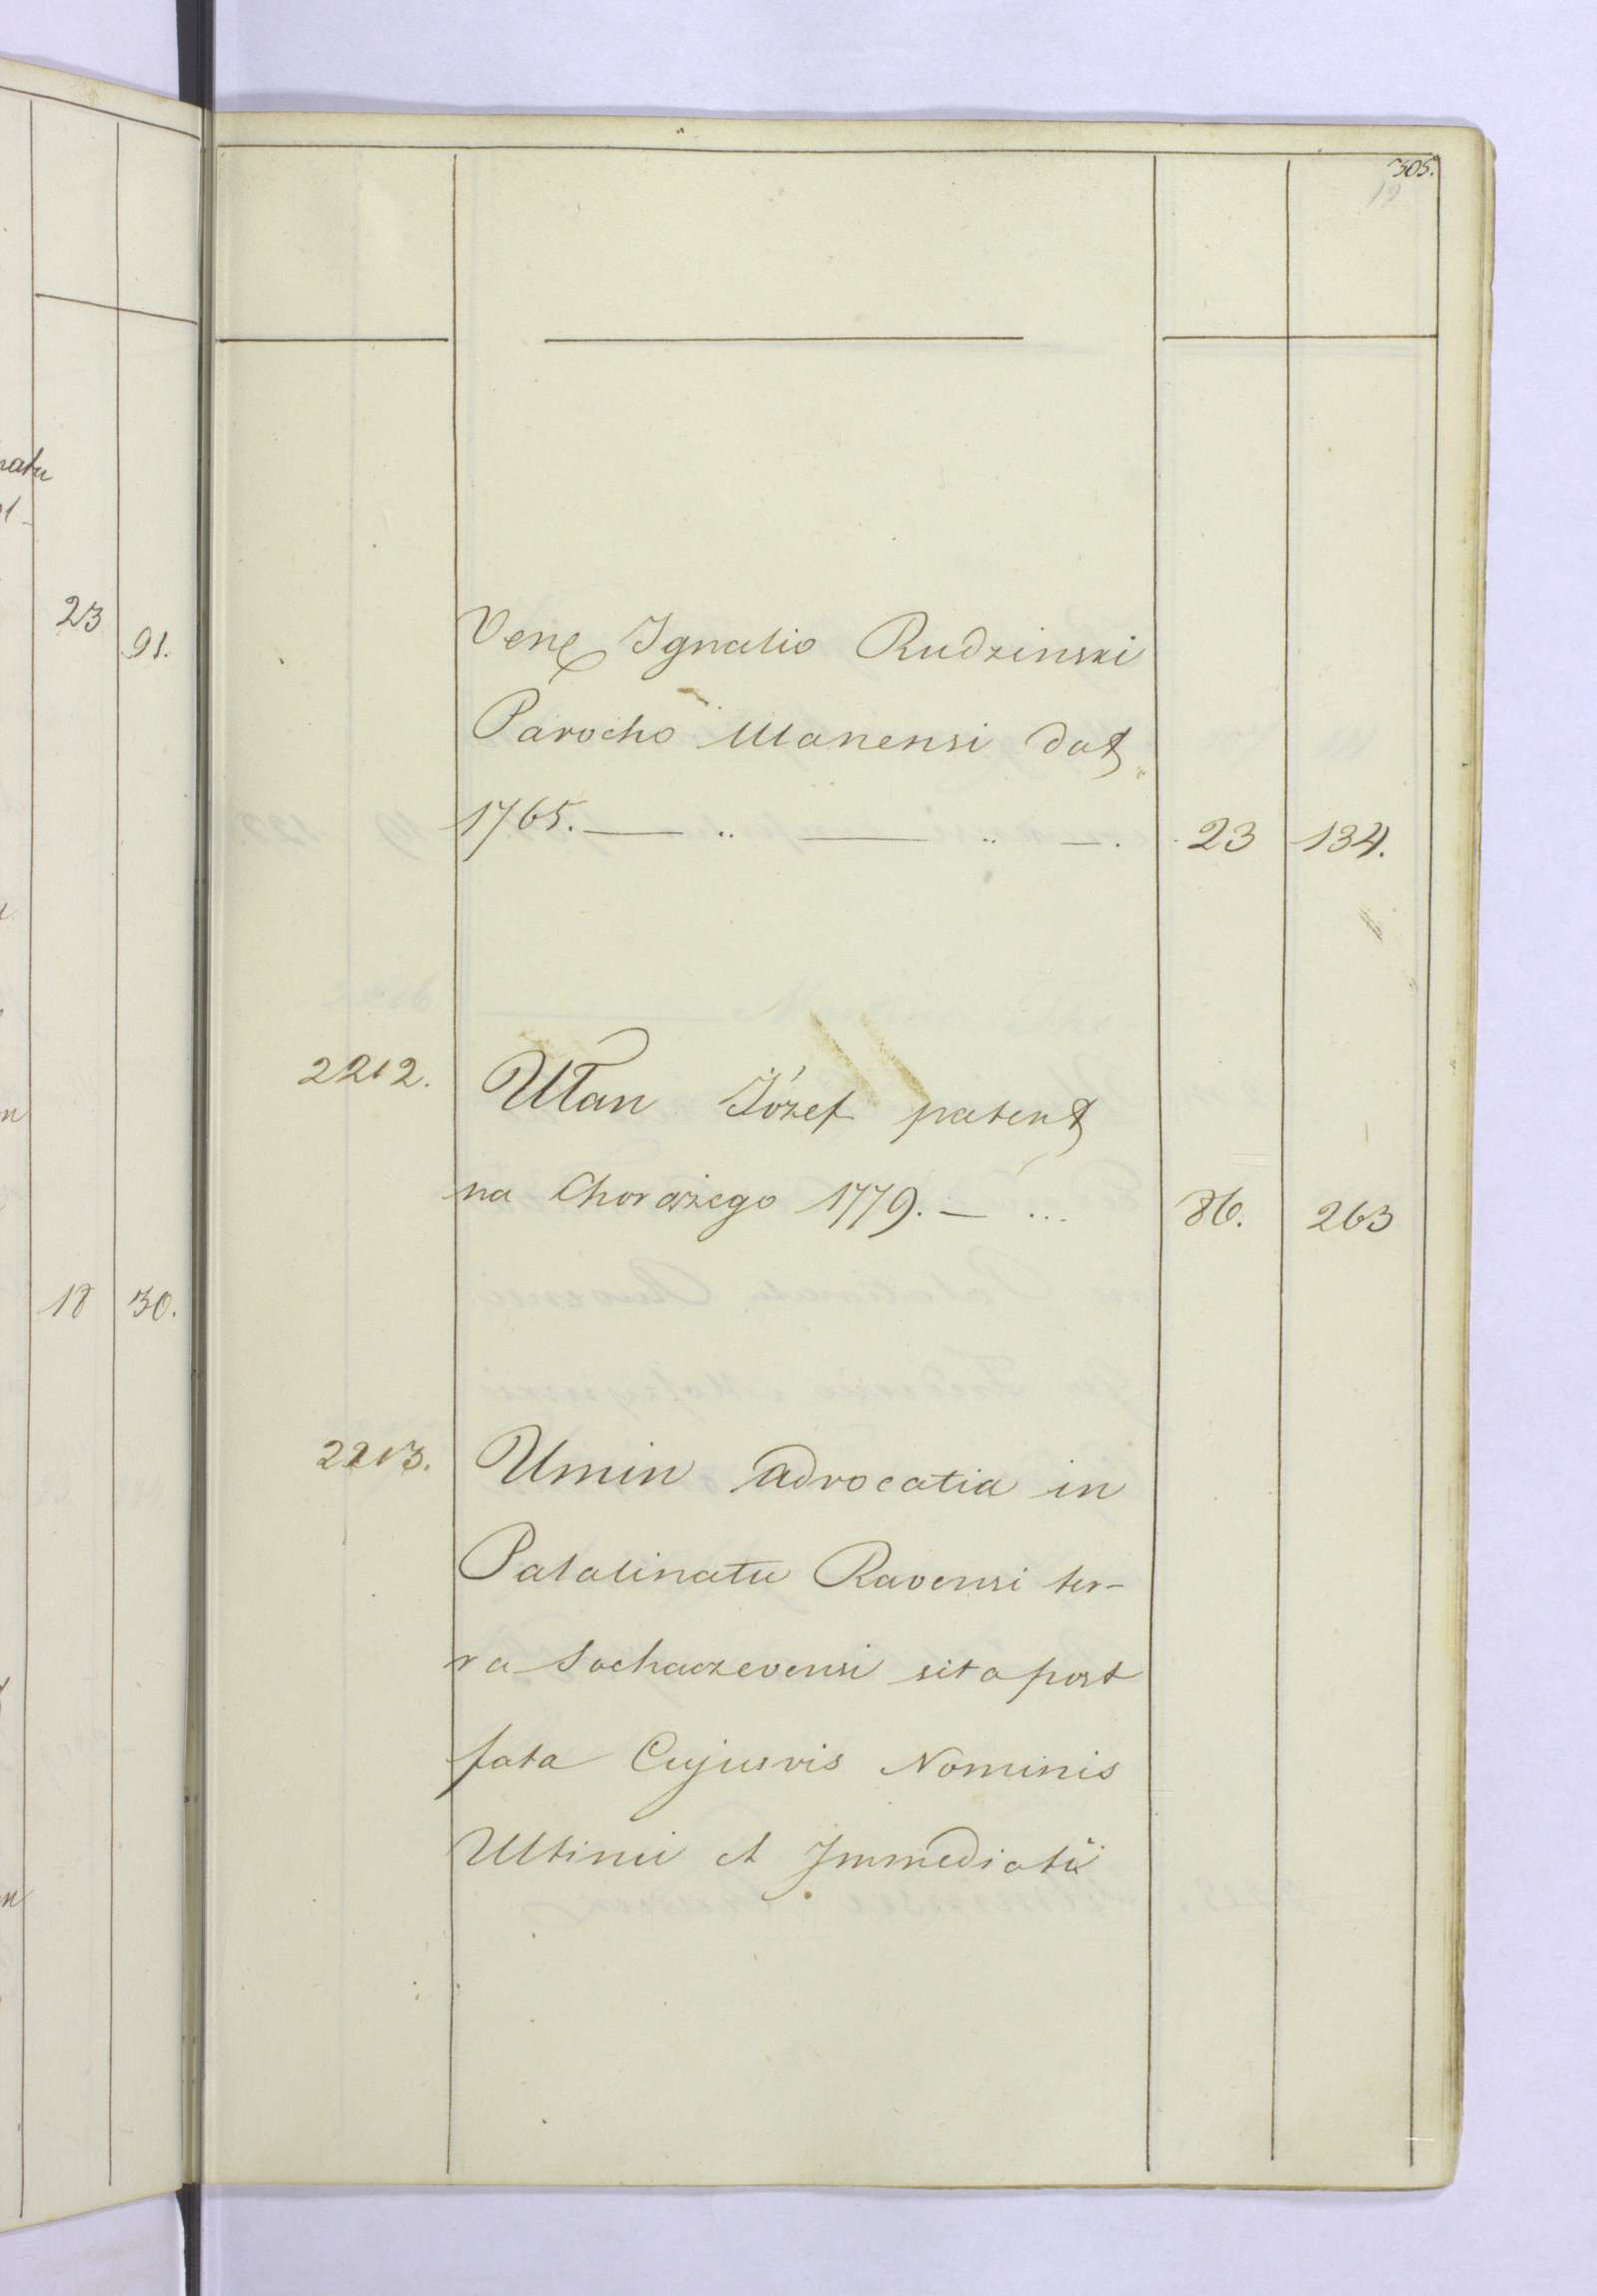 natu
91.
23
91.
18
30.
305.
19
Vene Ignatio Rudzinski
Parocho Ulanensi dat
1765. — „ — „ — . 23 134.
2212. Ułan Józef patent
na Chorążego 1779. — ... 86. 263
2213. Umin advocatia in
Palatinatu Ravensi ter-
ra Sochaczevensi sita post
fata Cujusvis Nominis
Ultimi et Immediati